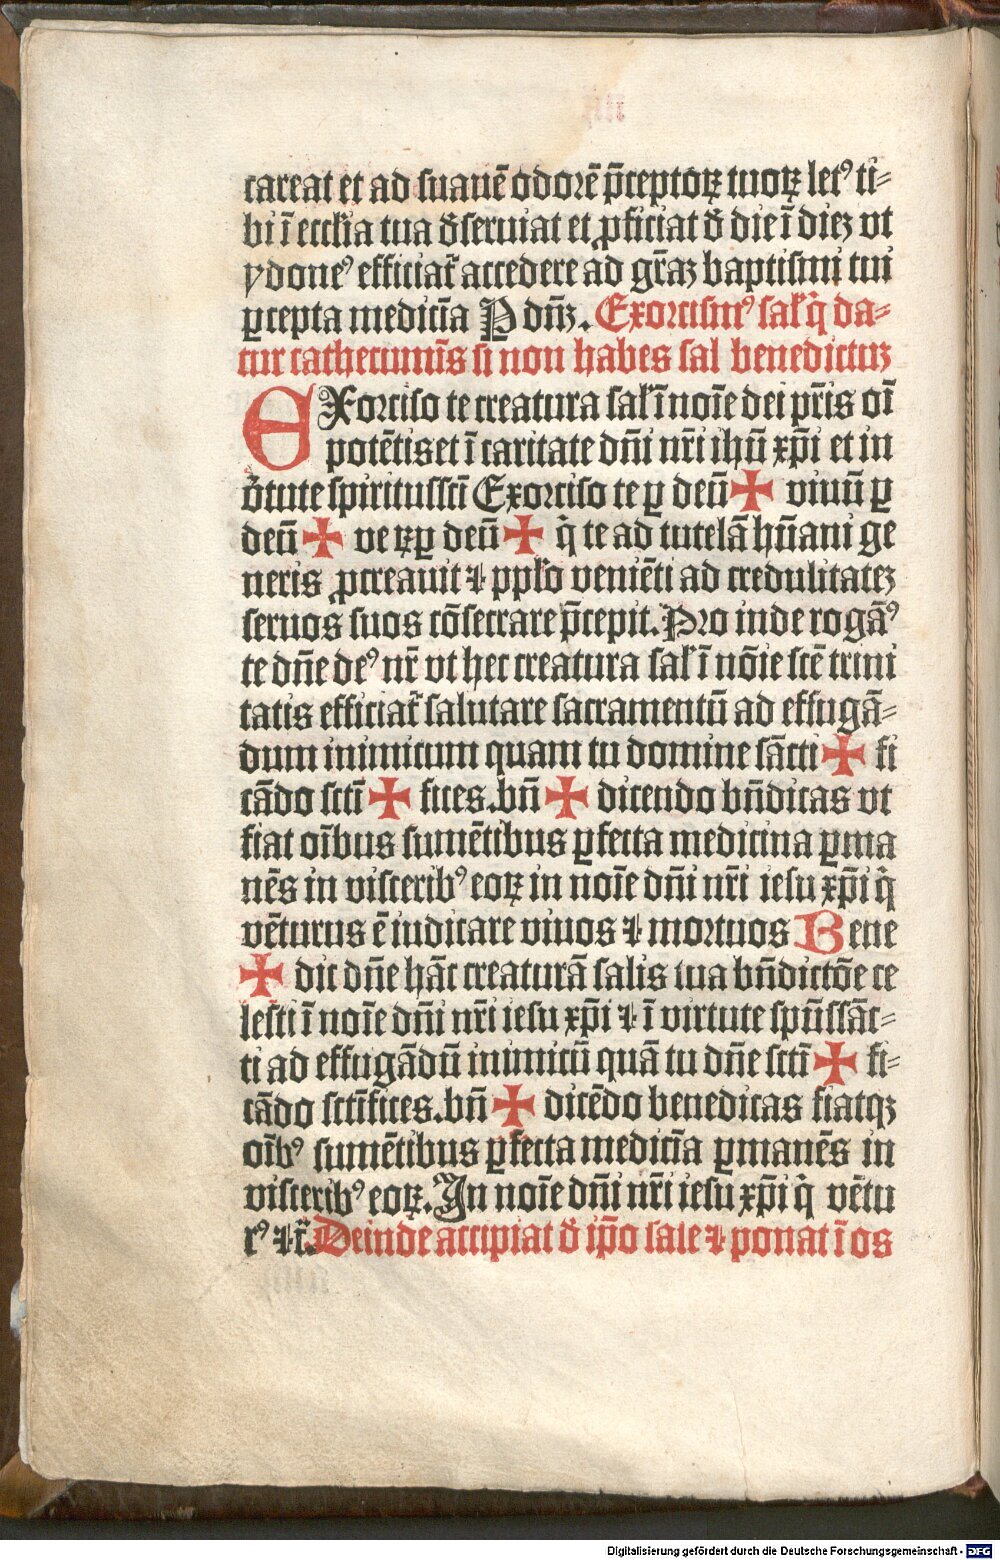 careat et ad suauē odorē p̄ceptoꝝ tuoꝝ letꝰ ti⸗
bi ī ecclīa tua d̕seruiat et ꝓficiat d̕ die ī dieꝫ vt
ydoneꝰ efficiat᷑ accedere ad gr̄aꝫ baptismi tui
ꝑcepta medicīa P dn̄ꝫ. Exorcismꝰ sal̕ q̇ da⸗
tur cathecumīs si non habes sal benedictuꝫ
EXorciso te creatura sal̕ ī noīe dei pr̄is oī
potētis et ī caritate dn̄i nr̄i ihū xp̄i et in
v̕tute spiritussctī Exorciso te ꝑ deū ✠ viuū ꝑ
deū ✠ veꝝ ꝑ deū ✠ q̇ te ad tutelā hūani ge
neris ꝓcreauit ⁊ ppl̕o veniēti ad credulitateꝫ
seruos suos cōsecrare p̄cepit. Pro inde rogāꝰ
te dn̄e deꝰ nr̄ vt hec creatura sal̕ ī nōie sctē trini
tatis efficiat᷑ salutare sacramentū ad effugā⸗
dum inimicum quam tu domine sācti ✠ fi
cādo sctī ✠ fices. bn̄ ✠ dicendo bn̄dicas vt
fiat oībus sumētibus ꝑfecta medicina ꝑma
nēs in visceribꝰ eoꝝ in noīe dn̄i nr̄i iesu xp̄i q̇
vēturus ē iudicare viuos ⁊ mortuos Bene
✠ dic dn̄e hāc creaturā salis tua bn̄dictōe ce
lesti ī noīe dn̄i nr̄i iesu xp̄i ⁊ ī virtute spūssāc⸗
ti ad effugādū inimicū quā tu dn̄e sctī ✠ fi⸗
cādo sctīfices. bn̄ ✠ dicēdo benedicas fiatqꝫ
oībꝰ sumētibus ꝑfecta medicīa ꝑmanēs in
visceribꝰ eoꝝ. In noīe dn̄i nr̄i iesu xp̄i q̇ vētu
rꝰ ⁊ r̄. Deinde accipiat d̕ ip̄o sale ⁊ ponat ī os
Digitalisierung gefördert durch die Deutsche Forschungsgemeinschaft - DFG